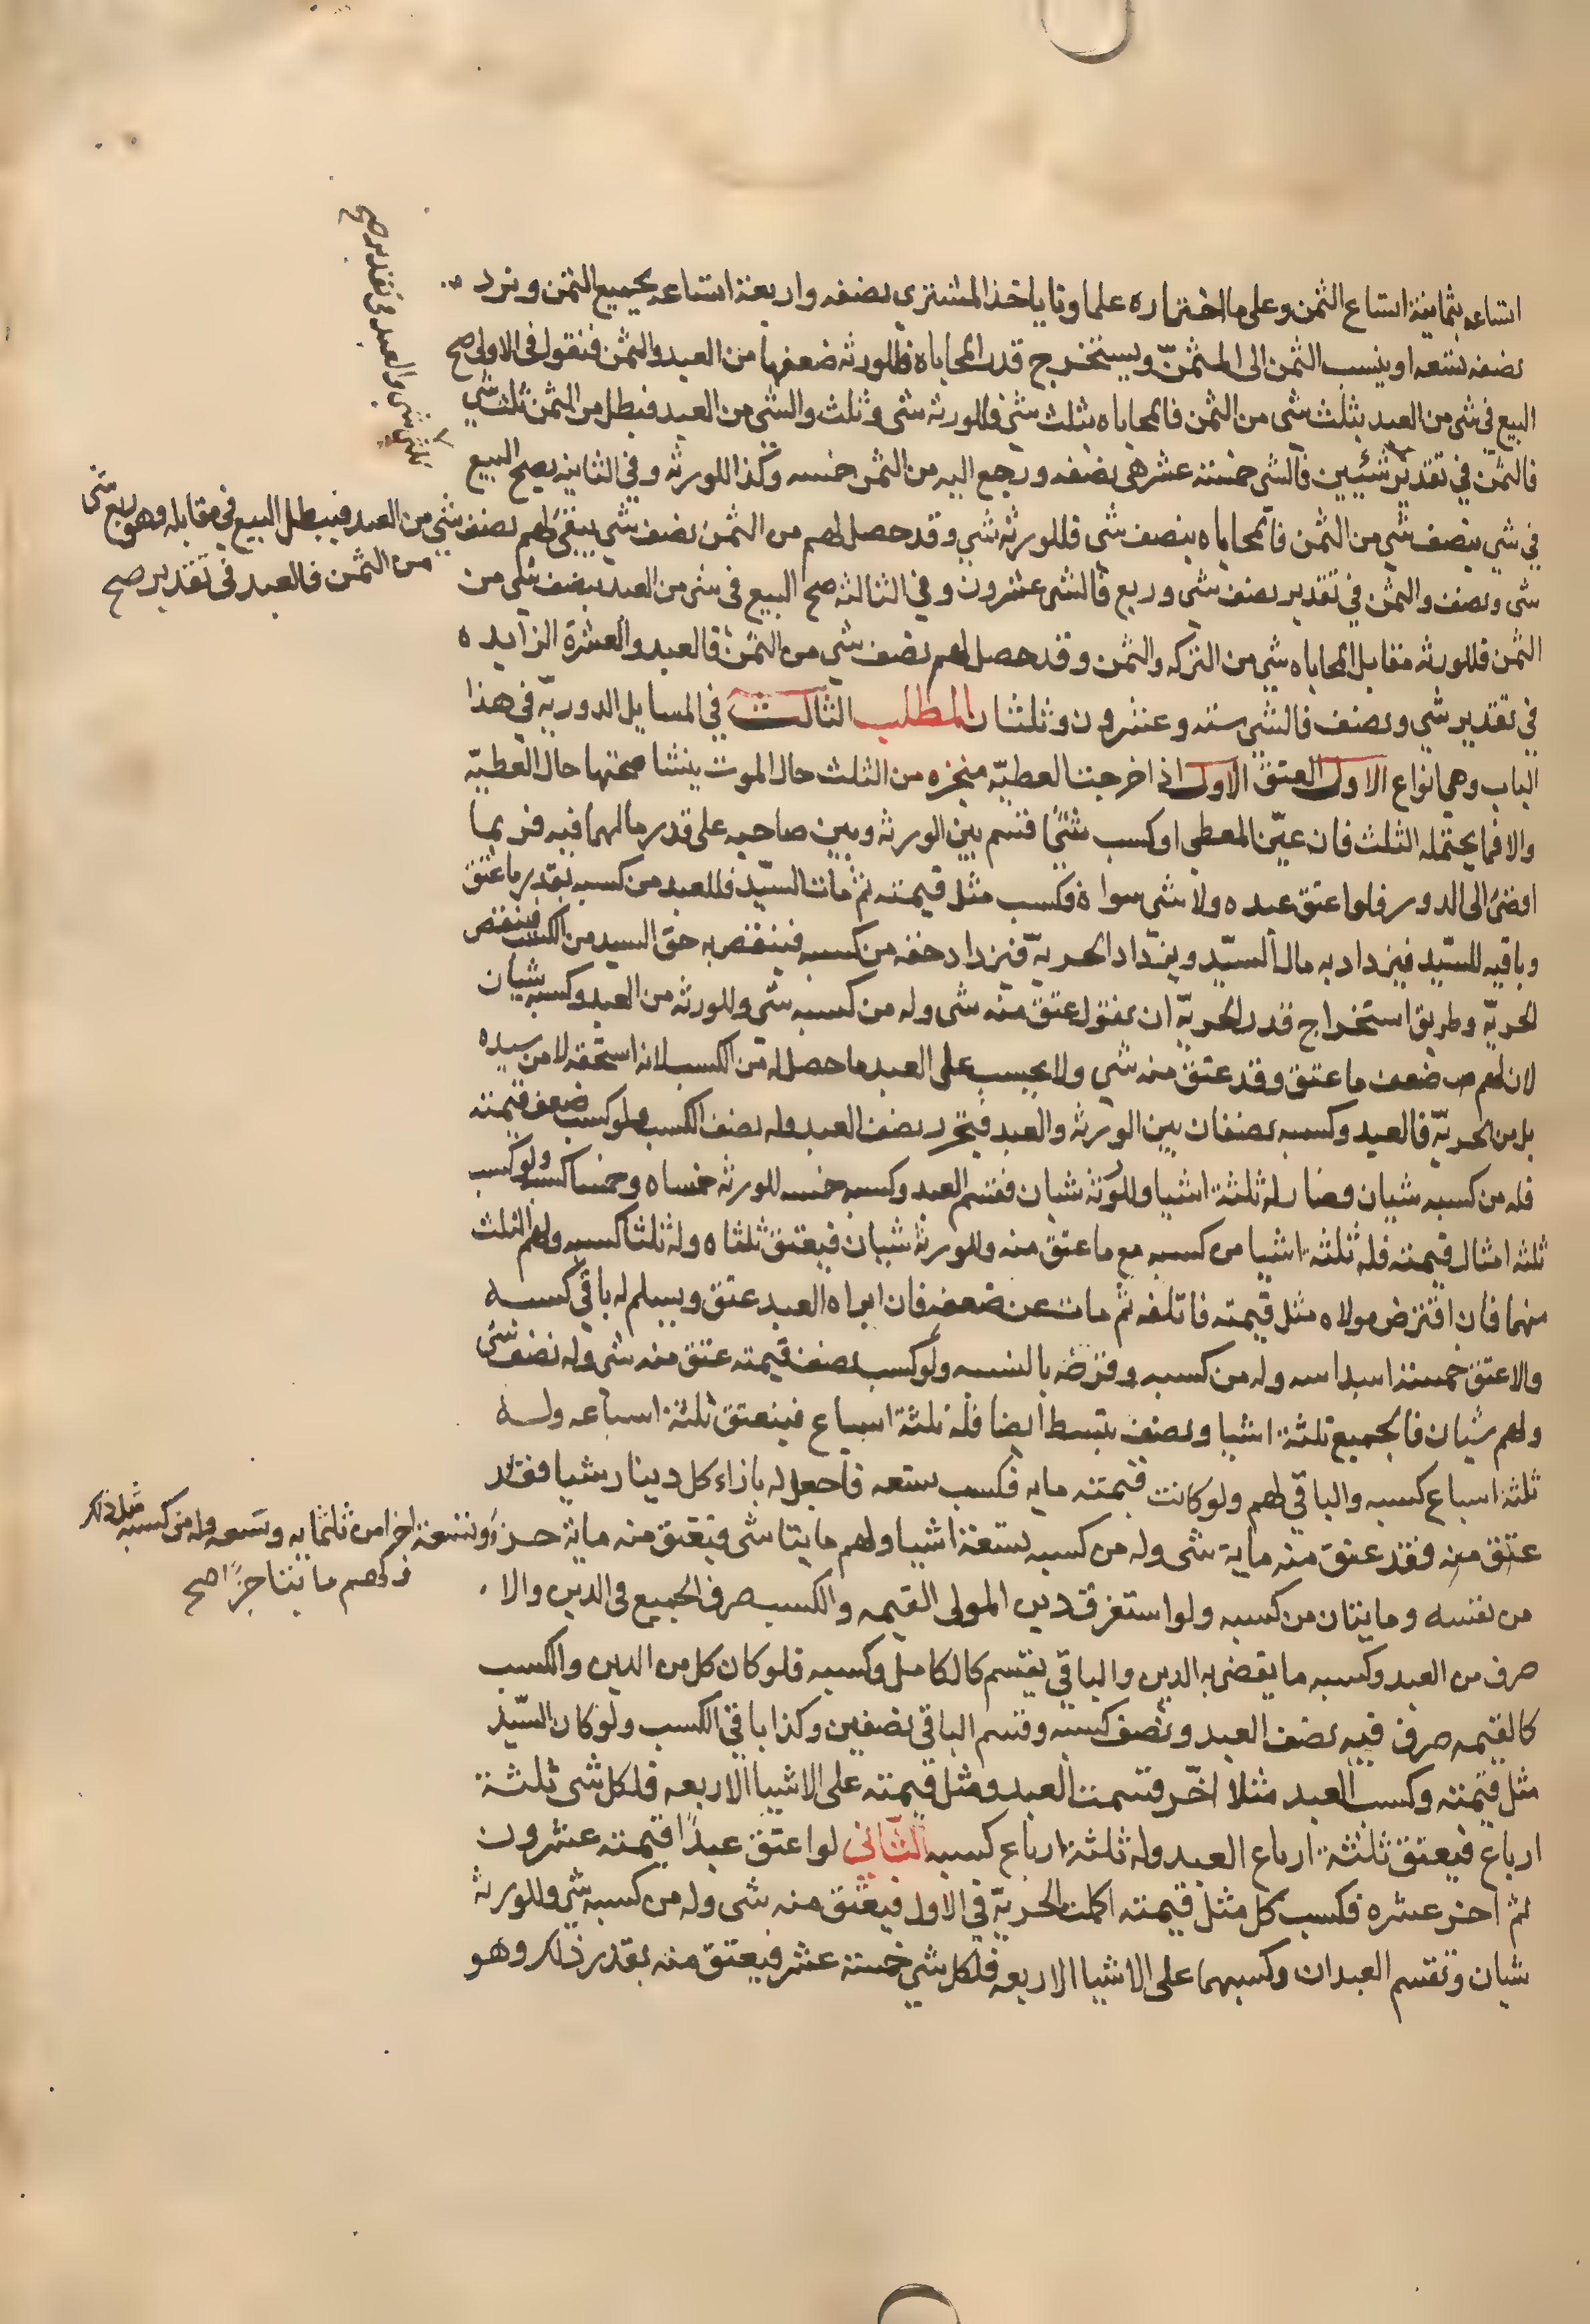 اتساعه بثمانية اتساع الثمن وعلى ما اختاره علماونا ياخذ المشتري نصفه واربعة اتساعه بجميع الثمن ويرد
نصف تسعه او ينسب الثمن الى المثمن ويستخرج قدر المحاباه فللورثه ضعفها من العبد والثمن فنقول في الاولى صح
البيع في شى من العبد بثلث شى من الثمن فالمحاباه بثلث شي فللورثه شى وثلث والشى من العبد فبطل من الثمن ثلث شي
فالثمن في تقدير شيئين فالشى خمسة عشر هي نصفه ورجع اليه من الثمن خمسه وكذا للورثه وفي الثانيه يصح البيع
في شي بنصف شي من الثمن فالمحاباه بنصف شى فللورثه شي وقد حصل لهم من الثمن نصف شي يبقى لهم نصف شي من العبد فيبطل البيع في مقابله وهو ربع شى
من الثمن فالعبد في تقدير صح
ثلثي شى والعبد في تقدير صح
شى ونصف والثمن في تقدير نصف شي وربع فالشى عشرون وفي الثالثه صح البيع في شى من العبد بنصف شي من
الثمن فللورثه مقابل المحاباه شي من التركه والثمن وقد حصل لهم نصف شي من الثمن فالعبد والعشرة الزايده
في تقدير شي ونصف فالشي سته وعشرون وثلثان المطلب الثالث في المسايل الدوريه في هذا
الباب وهي انواع الاول العتق الاول اذا خرجت العطيه منجزه من الثلث حال الموت ينشا صحتها حال العطيه
والا فما يحتمله الثلث فان عين المعطى او كسب شيئا قسم بين الورثه وبين صاحبه على قدر مالهما فيه فربما
افضى الى الدور فلو اعتق عبده ولا شى سواه فكسب مثل قيمته ثم مات السيد فللعبد من كسبه بقدر ما عتق
وباقيه للسيد فيزداد به مال السيد ويزداد الحريه فيزداد حقه من كسبه فينقص به حق السيد من الكسب فينقص
الحريه وطريق استخراج قدر الحريه ان نقول عتق منه شى وله من كسبه شى وللورثه من العبد وكسبه شيان
لان لهم ضعف ما عتق وقد عتق منه شي ولا يحسب على العبد ما حصل له من الكسب لانه استحقه لا من سيده
بل من الحريه فالعبد وكسبه نصفان بين الورثه والعبد فيتحرر نصف العبد وله نصف الكسب ولو كسب ضعف قيمته
فله من كسبه شيان وصار له ثلثة اشيا وللورثة شيان فقسم العبد وكسبه خمسه للورثه خمساه وخمسا كسبه ولو كسب
ثلثه امثال قيمته فله ثلثة اشيا من كسبه مع ما عتق منه وللورثه شيان فيعتق ثلثاه وله ثلثا كسبه ولهم الثلث
منهما فان اقترض مولاه مثل قيمته فاتلفه ثم مات عن ضعفه فان ابراه العبد عتق ويسلم له باقي كسبه
والا عتق خمسة اسداسه وله من كسبه وقرضه بالنسبه ولو كسب نصف قيمته عتق منه شى وله نصف شى
ولهم شيان فالجميع ثلثة اشيا ونصف تبسط انصافا فله ثلثة اسباع فينعتق ثلثة اسباعه وله
ثلثة اسباع كسبه والباقي لهم ولو كانت قيمته مايه فكسب تسعه فاجعل له بازاء كل دينار شيا فقد
عتق منه فقد عتق منه ماية شى وله من كسبه تسعة اشيا ولهم مايتا شى فيعتق منه ماية جزء وتسعة اجزا من ثلثمايه وتسعه وله من كسبه مثل ذلك
ولهم مايتا جزءا صح
من نفسه ومايتان من كسبه ولو استغرق دين المولى القيمه والكسب صرف الجميع في الدين والا
صرف من العبد وكسبه ما يقضى به الدين والباقي يقسم كالكامل وكسبه فلو كان كل من الدين والكسب
كالقيمه صرف فيه نصف العبد ونصف كسبه وقسم الباقي نصفين وكذا باقي الكسب ولو كان للسيد
مثل قيمته وكسب العبد مثلا اخر قسمت العبد ومثل قيمته على الاشيا الاربعه فلكل شى ثلثة
ارباع فيعتق ثلثة ارباع العبد وله ثلثة ارباع كسبه الثاني لو اعتق عبدا قيمته عشرون
ثم اخر عشره فكسب كل مثل قيمته اكملت الحريه في الاول فيعتق منه شى وله من كسبه شي وللورثه
شيان وتقسم العبدان وكسبهما على الاشيا الاربعه فلكل شي خمسة عشر فيعتق منه بقدر ذلك وهو